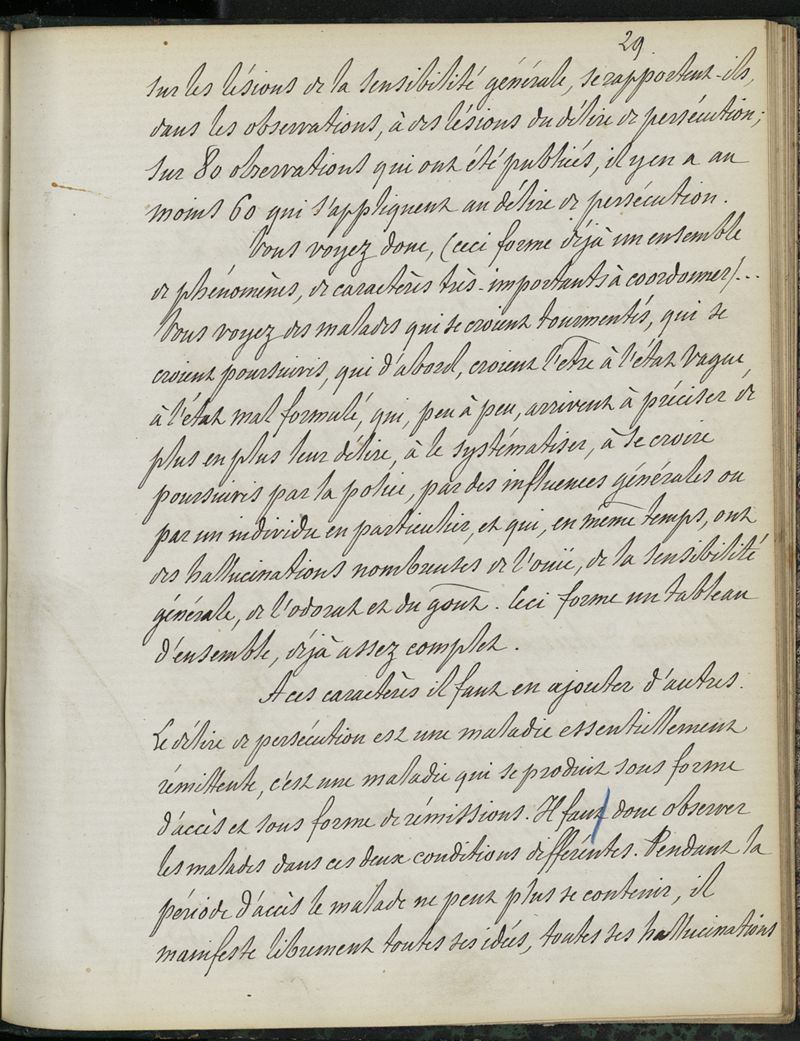 29
sur les lésions de la sensibilité générale, se rapportent-ils,
dans les observations, à des lésions du délire de persécution;
sur 80 observations qui ont été publiés, il y en a au
moins 60 qui s'appliquent au délire de persécution.
Vous voyez donc, (ceci forme déjà un ensemble
de phénomènes, de caractères très-importants à coordonner)...
Vous voyez des malades qui se croient tourmentés, qui se
croient poursuivis, qui d'abord, croient l'être à l'état vague,
à l'état mal formulé, qui, peu à peu, arrivent à préciser de
plus en plus leur délire, à le systématiser, à se croire
poursuivis par la police, par des influences générales ou
par un individu en particulier, et qui, en même temps, ont
des hallucinations nombreuses de l'ouïe, de la sensibilité
générale, de l'odorat et du goût. Ceci forme un tableau
d'ensemble, déjà assez complet.
A ces caractères il faut en ajouter d'autres.
Le délire de persécution est une maladie essentiellement
rémittente, c'est une maladie qui se produit sous forme
d'accès et sous forme de rémissions. Il faut donc observer
les malades dans ces deux conditions différentes. Pendant la
période d'accès le malade ne peut plus se contenir, il
manifeste librement toutes ses idées, toutes ses hallucinations